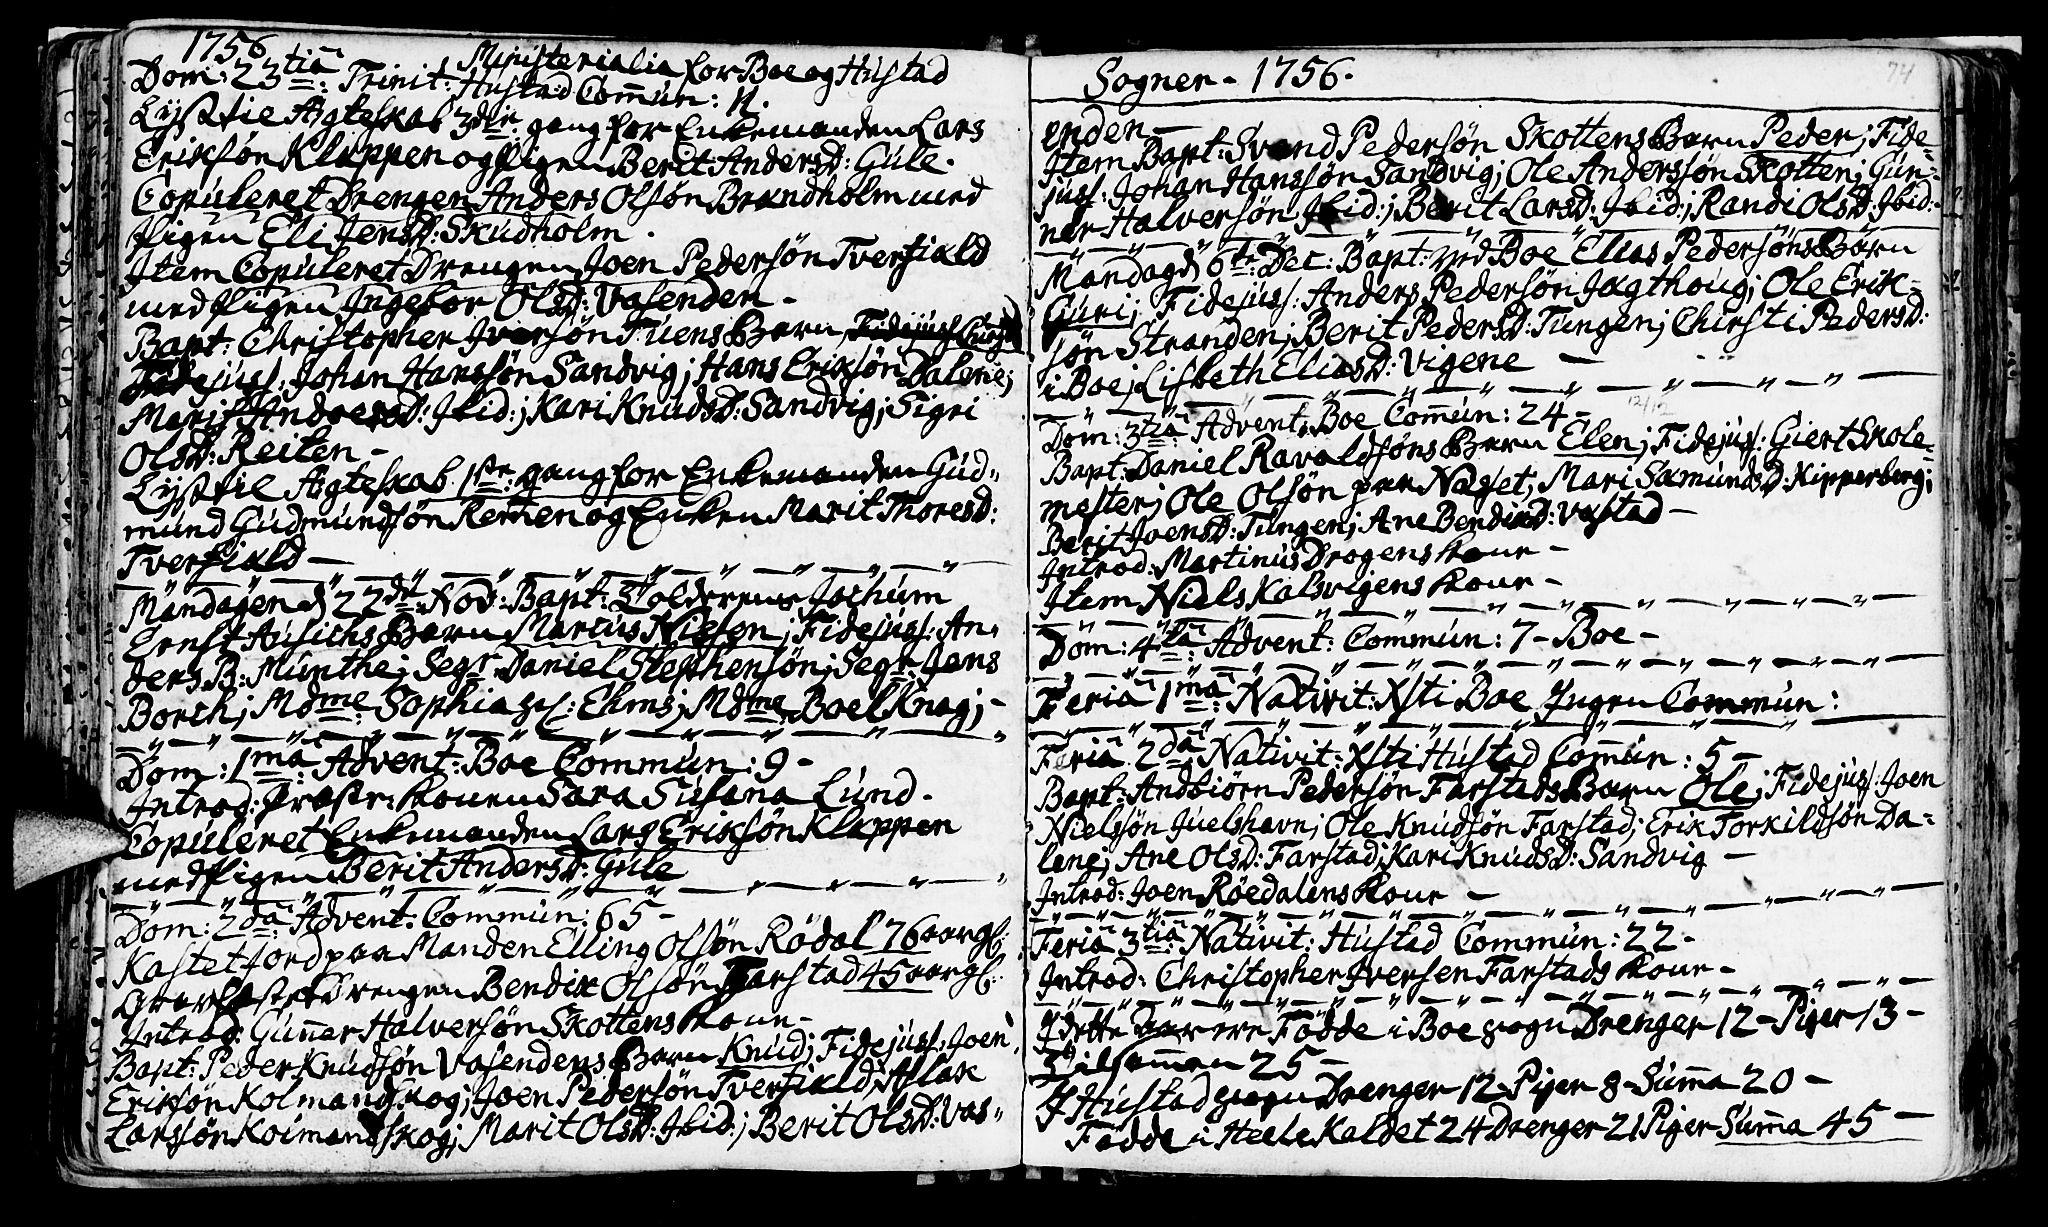 1756
Ministerialia for Boe og Hustad
Dom: 23tia Trinit: Hustad Com̄un: 11.
Lyst til Ægteskab 3die gang for Enkemanden Lars
Eriksøn Klappen og Pigen Berit AndersD: Gule.
Copuleret Drengen Anders Olsøn Brandholm med
Pigen Eli JensD: Skudholm.
Item Copuleret Drengen Joen Pedersøn Tverfiald
med Pigen Ingebor OlsD: Vasenden -
Bapt: Christopher Iversøn Tuens Barn
Fidejuss: Johan Hanssøn Sandvig; Hans Eriksøn Dalene;
Marit AndersD: Ibid:; Kari KnudsD: Sandvig; Sigri
OlsD: Reiten -
Lyst til Ægteskab 1ste gang for Enkemanden Gud-
mund Gudmundsøn Remen og Enken Marit ThoresD:
Tverfiald -
Mandagen d 22de Nov: Bapt: Tolderens Jochum
Ernst Ausichs Barn Marcus Nissen; Fidejuss: An-
ders B: Munthe; Segr Daniel Stephensøn; Segr Jens
Borch; Mdme Sophia Ehms; Mdme Boel Knag; -
Dom: 1ma Advent: Boe Commun: 9 -
Introd: Præste Konen Sara Susana Lund.
Copuleret Enkemanden Lars Eriksøn Klappen
med Pigen Berit AndersD: Gule
Dom: 2da Advent: Commun: 65 -
Kastet Jord paa Manden Elling Olsøn Rødal 76 aar gl:
Drengen Bendix Olsøn Farstad 45 aar gl:
Introd: Gunnar Halversøn Skottens Kone -
Bapt: Peder Knudsøn Vasendens Barn Knud; Fidejuss: Joen
Eriksøn Kolmandskog; Joen Pedersøn Tverfiald; Aslak
Larssøn Kolmandskog; Marit OlsD: Ibid:; Berit OlsD: Vas-
Sogner - 1756.
74
enden -
Item Bapt: Svend Pedersøn Skottens Barn Peder; Fide-
juss: Johan Hanssøn Sandvig; Ole Anderssøn Skotten; Gun-
nar Halversøn Ibid:; Berit LarsD: Ibid:; Randi OlsD: Ibid: -
Mandag d 6te Dec: Bapt: ved Boe Elias Pedersøns Barn
Guri; Fidejuss: Anders Pedersøn Jagthoug; Ole Erik-
søn Stranden; Berit PedersD: Tungen; Chirsti PedersD:
i Boe; Lisbeth EliasD: Vigene -
Dom: 3tia Advent: Boe Com̄un: 24 -
12/12
Bapt: Daniel Ravaldsøns Barn Elen; Fidejuss: Giert Skole-
mester; Ole Olsøn paa Næset; Mari SamundsD: Kipperberg;
Berit JoensD: Tungen; Ane BendixD: Vastad -
Introd: Martinus Drogens Kone -
Item Niels Kalsvigens Kone -
Dom: 4ta Advent: Commun: 7 - Boe -
Feria 1ma Nativit: Xsti Boe Ingen Commun:
Feria 2da Nativit: Xsti Hustad Com̄un: 5 -
Bapt: Andbiørn Pedersøn Farstads Barn Ole; Fidejuss: Joen
Nielssøn Juelshavn; Ole Knudsøn Farstad; Erik Torkildsøn Da-
lene; Ane OlsD: Farstad; Kari KnudsD: Sandvig -
Introd: Joen Røedalens Kone -
Feria 3tia Nativit: Hustad Commun: 22 -
Introd: Christopher Iversen Farstads Kone -
I dette Aar ere Fødde i Boe sogn Drenger 12 - Piger 13 -
Tilsam̄en 25 -
I Hustad sogn Drenger 12 - Piger 8 - Sum̄a 20 -
Fødde i Heele Kaldet 24 Drenger 21 Piger Sum̄a 45 -